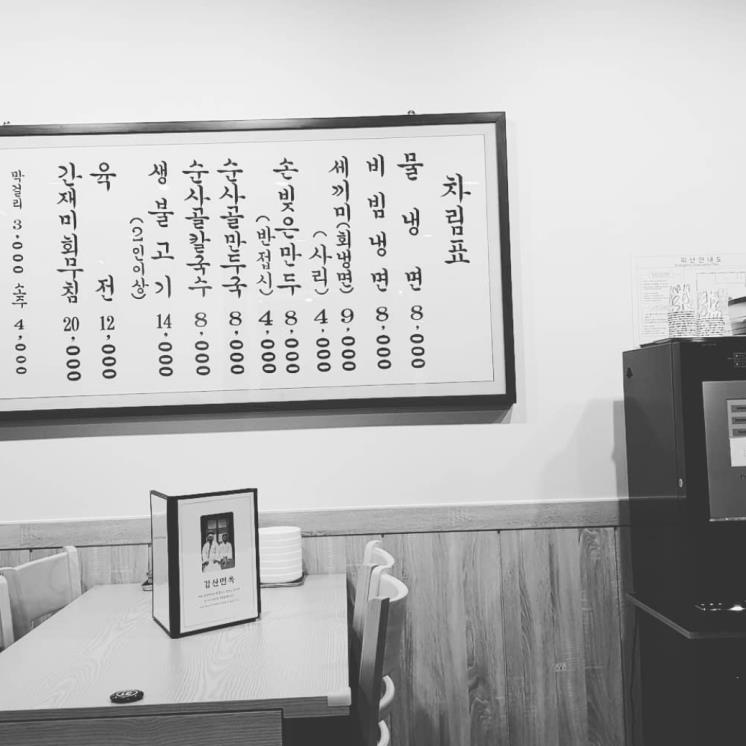 차림표
물냉면 8,000
비빔냉면 8,000
세끼미(회냉면) 9,000
(사리) 4,000
손빚은만두 8,000
(반접시) 4,000
순사골만두국 8,000
순사골칼국수 8,000
생불고기 14,000
(2인이상)
육전 12,000
간재미회무침 20,000
막걸리 3,000 소주 4,000
피난안내도